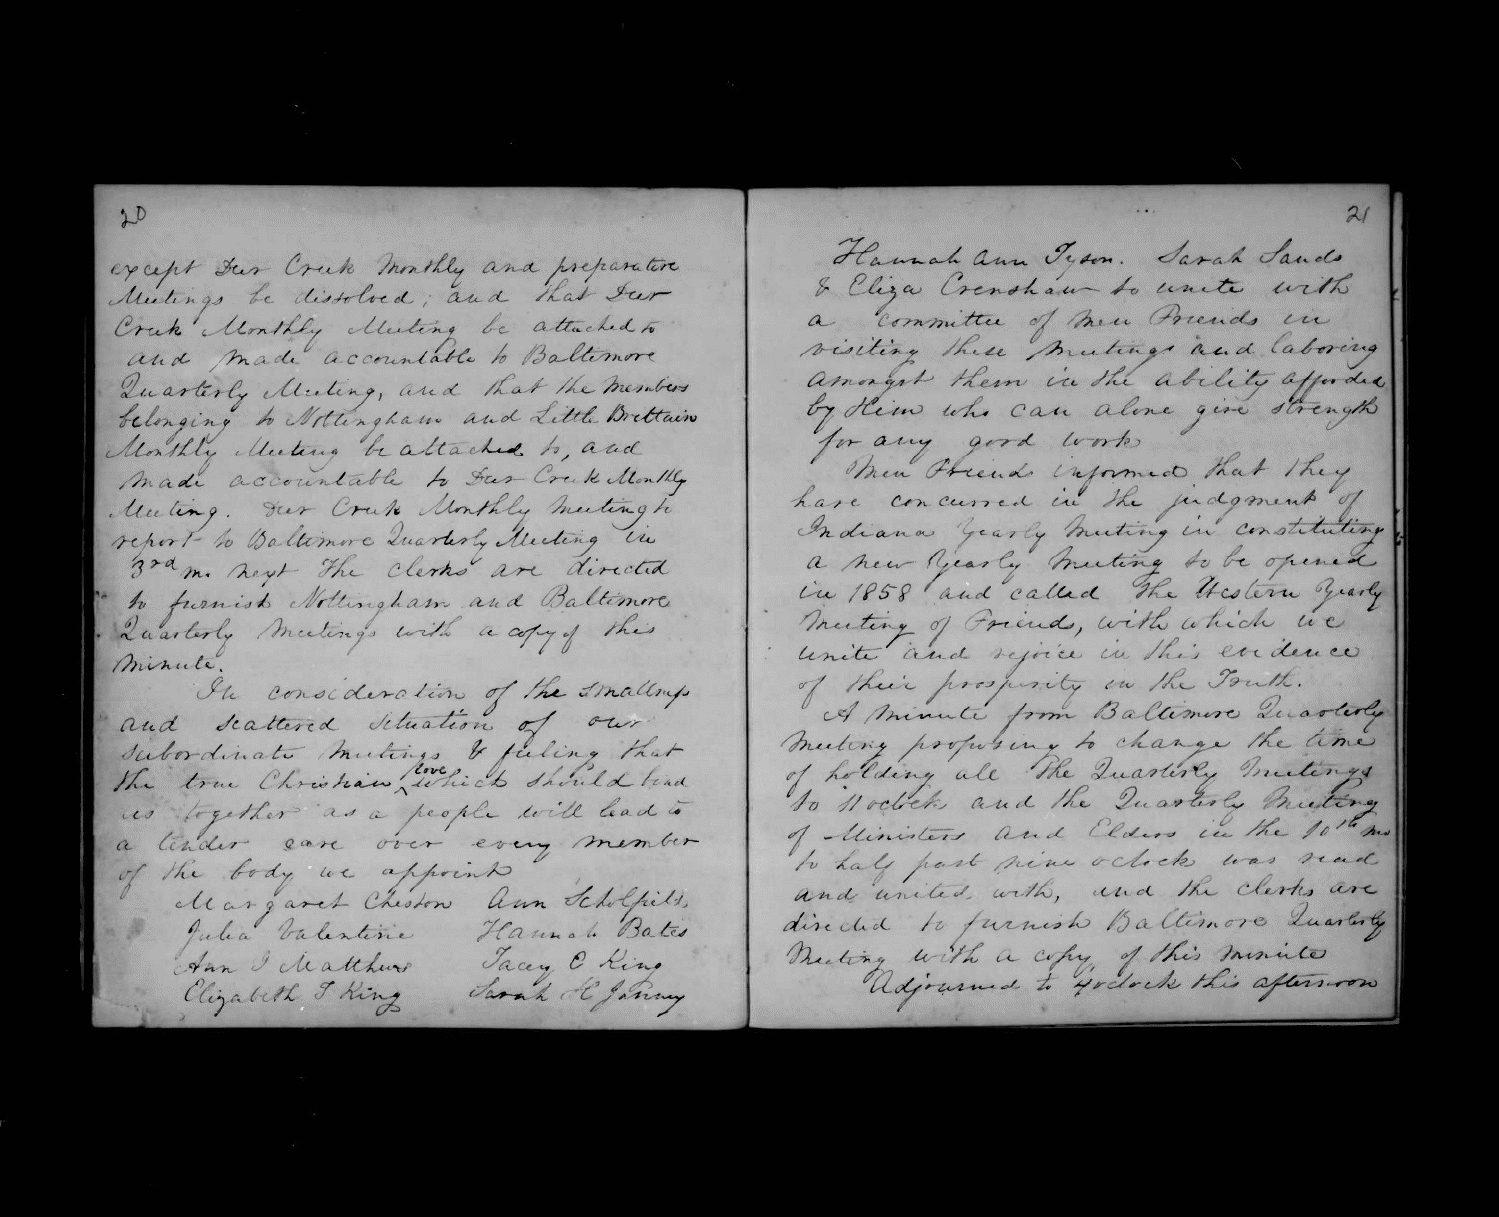 20
except Deer Creek Monthly and preparative
Meetings be dissolved; and that Deer
Creek Monthly Meeting be attached to
and made accountable to Baltimore
Quarterly Meeting, and that the members
belonging to Nottingham and Little Brittain
Monthly Meeting be attached to, and
made accountable to Deer Creek Monthly
Meeting. Deer Creek Monthly Meeting to
report to Baltimore Quarterly Meeting in
3rd mo next The clerks are directed
to furnish Nottingham and Baltimore
Quarterly Meetings with a copy of this
minute.
In consideration of the smallness
and scattered situation of our
subordinate meetings & feeling that
the true Christian love which should bind
us together as a people will lead to
a tender care over every member
of the body we appoint
Margaret Cheston Ann Scholfield
Julia Valentine Hannah Bates
Ann J Matthews Tacey C King
Elizabeth T King Sarah H Janney
21
Hannah Ann Tyson. Sarah Sands
& Eliza Crenshaw to unite with
a committee of men Friends in
visiting these meetings and laboring
amongst them in the ability afforded
by Him who can alone give strength
for any good work
Men Friends informed that they
have concurred in the judgment of
Indiana Yearly Meeting in constituting
a new Yearly Meeting to be opened
in 1858 and called The Western Yearly
Meeting of Friends, with which we
unite and rejoice in this evidence
of their prosperity in the Truth.
A minute from Baltimore Quarterly
Meeting proposing to change the time
of holding all the Quarterly Meetings
to 11 oclock and the Quarterly Meeting
of Ministers and Elders in the 10th mo
to half past nine oclock was read
and united with, and the clerks are
directed to furnish Baltimore Quarterly
Meeting with a copy of this minute
Adjourned to 4 oclock this afternoon